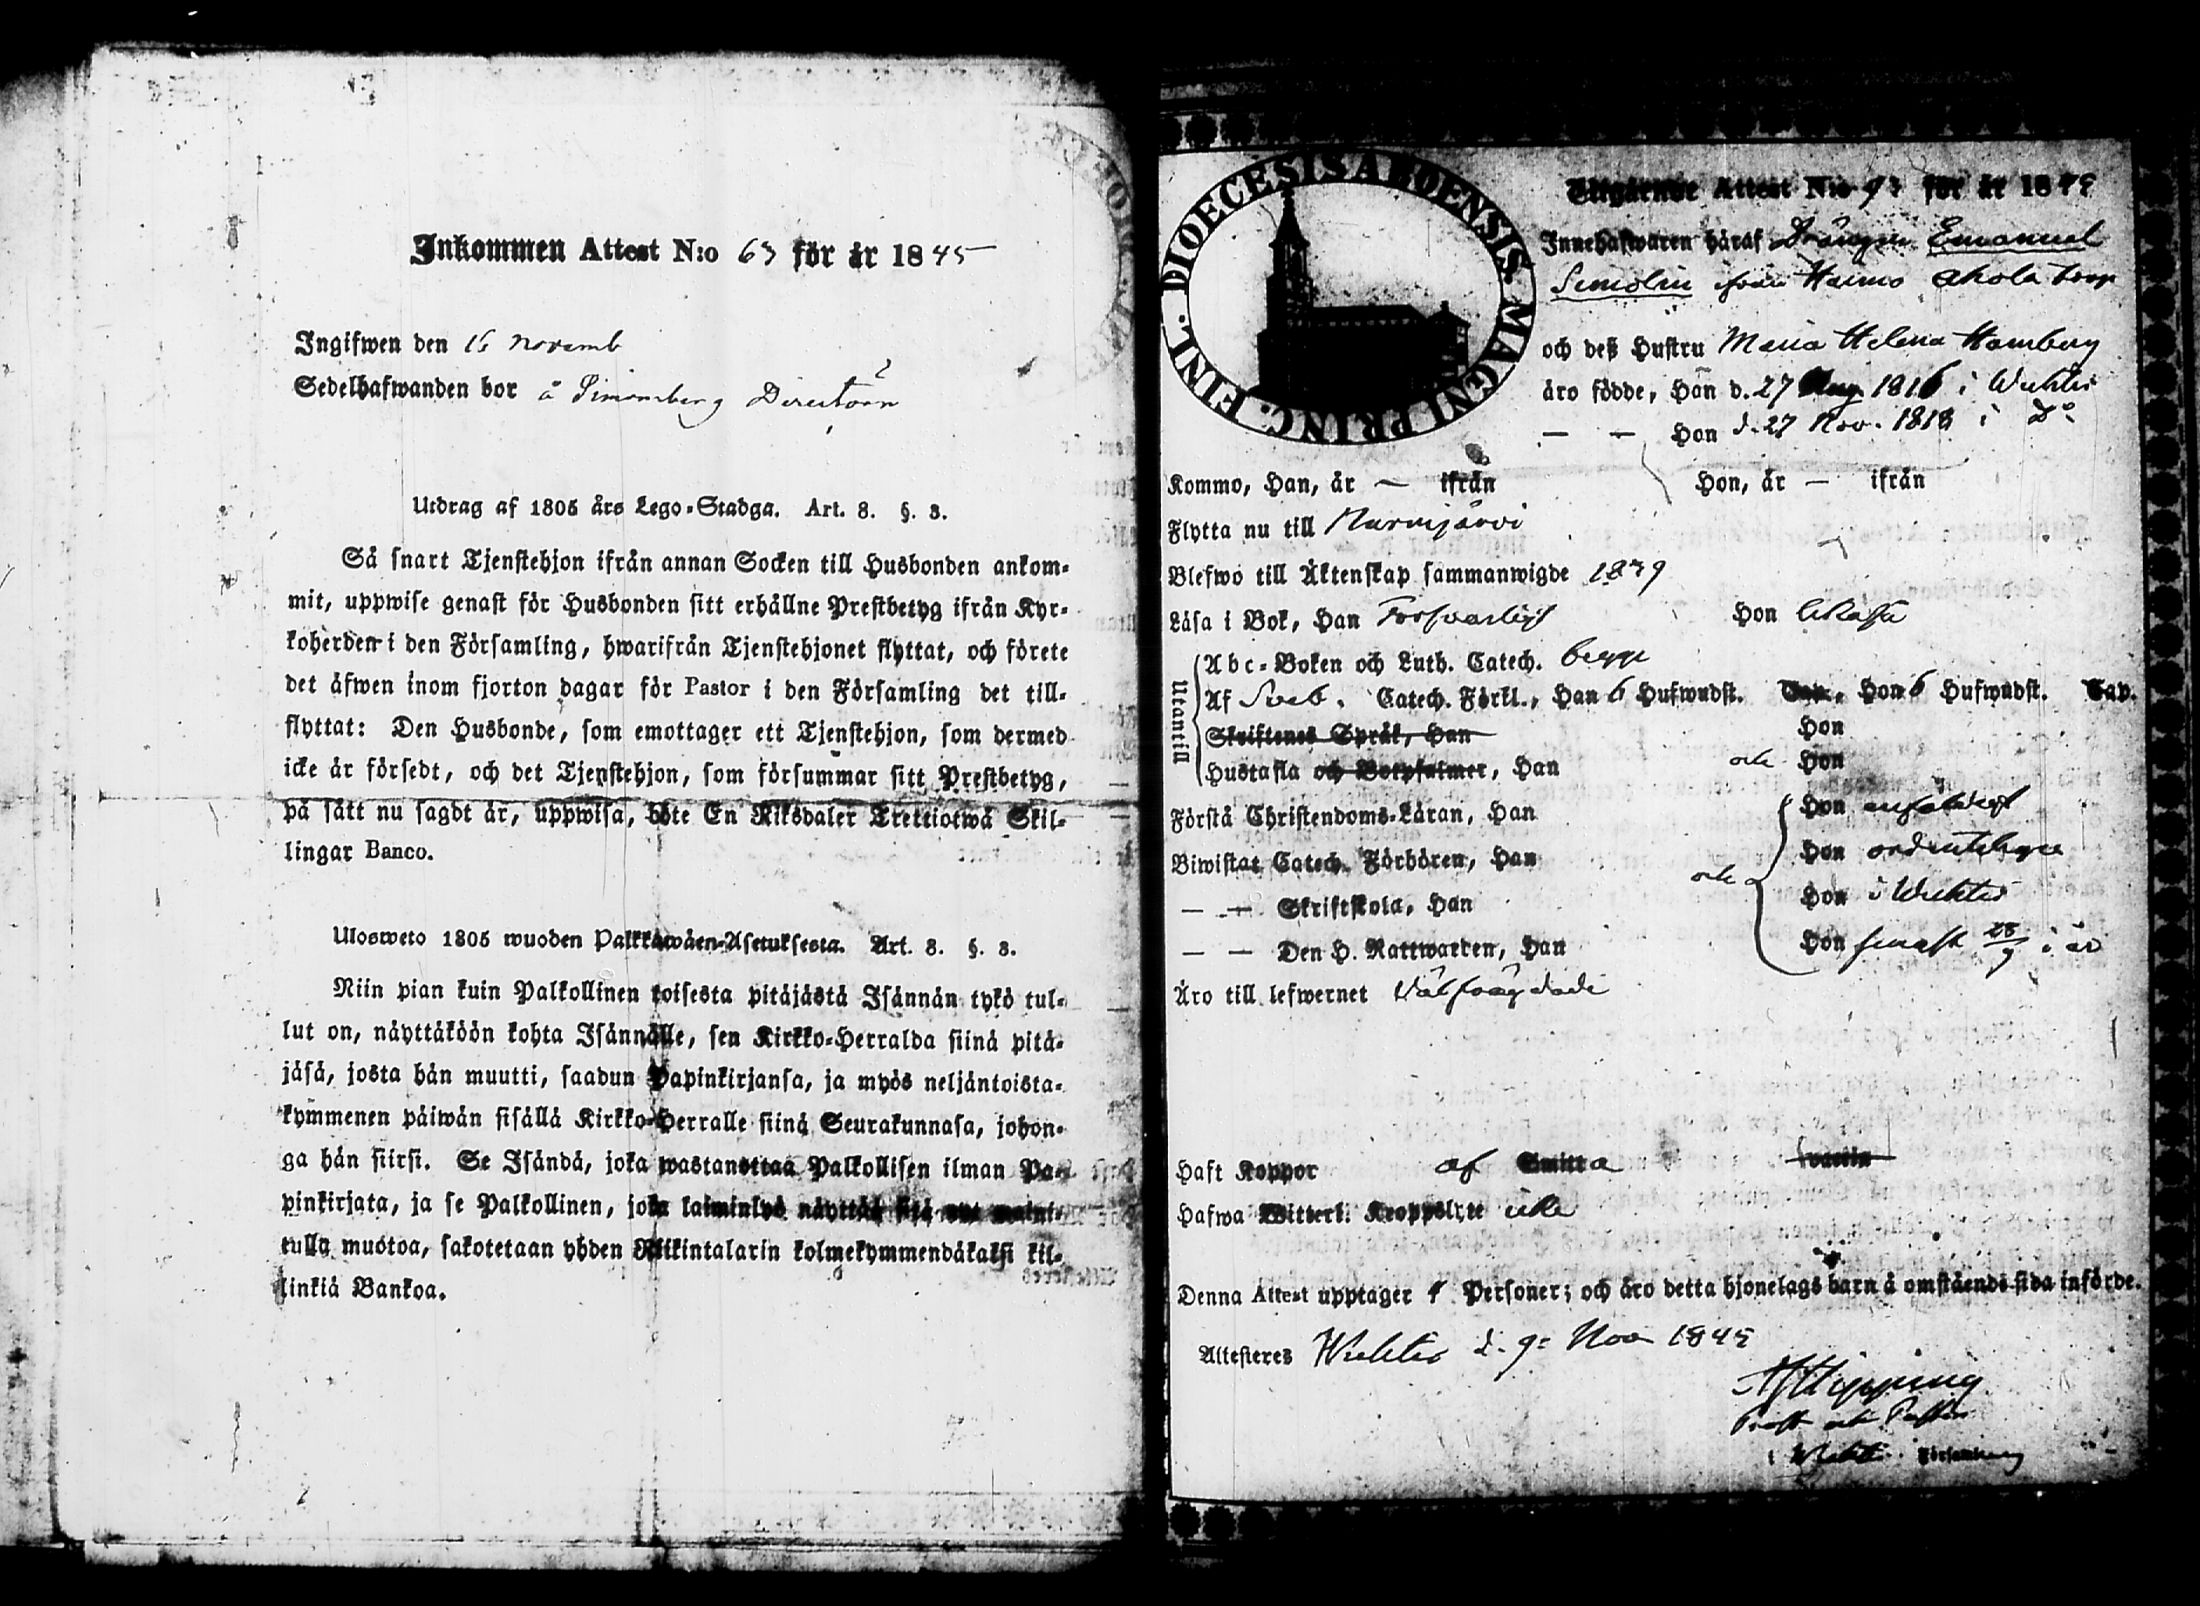 Inkommen Attest N:o 63 för år 1845
Ingifwen den 16 novemb
Sedelhafwanden bor å Simonsberg
Utdrag af 1805 års Lego-Stadga. Art. 8. §. 3.
Så snart Tjenstehjon ifrån annan Socken till Husbonden ankom-
mit, uppwise genast för Husbonden sitt erhållne Prestbetyg ifrån Kyr-
koherden i den Församling, hwarifrån Tjenstehjonet flyttat, och förete
det äfwen inom fjorton dagar för Pastor i den Församling det till-
flyttat: Den Husbonde, som emottager ett Tjenstehjon, som dermed
icke är försedt, och det Tjenstehjon, som försummar sitt Prestbetyg,
på sätt nu sagdt är, uppwisa, böte En Riksdaler Trettiotwå Skil-
lingar Banco.
Ulosweto 1805 wuoden Palkkawäen-Asetuksesta. Art. 8. §. 3.
Niin pian kuin Palkollinen toisesta pitäjästä Isännän tykö tul-
lut on, näyttäköön kohta Isännälle, sen Kirkko-Herralda siinä pitä-
jäsä, josta hän muutti, saadun Papinkirjansa, ja myös neljäntoista-
kymmenen päiwän sisällä Kirkko-Herralle siinä Seurakunnasa, johon-
ga hän siirsi. Se Isändä, joka wastanottaa Palkollisen ilman Pa-
pinkirjata, ja se Palkollinen, joka laiminlyö näyttää sitä nyt maini-
tulla muotoa, sakotetaan yhden Riikintalarin kolmekymmendäkaksi kil-
linkiä Bankoa.
DIOECESIS ABOENSIS MAGNI PRINC. FINL.
Utgående Attest N:o för år 18
Innehafwaren häraf Drängen Emanuel
Simolin ifrån Haimo torp
och deß Hustru Maria Helena Hamberg
äro födde, Han d. 27 Aug. 1816 i Wichtis
— — Hon d. 27 Nov. 1818 i Do
Kommo, Han, år — ifrån Hon, år — ifrån
Flytta nu till Nurmijärvi
Blefwo till Äktenskap sammanwigde 1839
Läsa i Bok, Han Försvarligt Hon likaså
Utantill
Abc-Boken och Luth. Catech. begge
Af Sveb. Catech. Förkl., Han 6 Hufwudst. Cap., Hon 6 Hufwudst. Cap.
Skriftenes Språk, Han Hon
Hustafla och Botpsalmer, Han och Hon
Förstå Christendoms-Läran, Han Hon enfaldigt
Biwistat Catech. Förhören, Han och Hon ordentligen
— — Skriftskola, Han Hon i Wichtis
— — Den H. Nattwarden, Han Hon senast 28/9 i år
Äro till lefwernet Välfrägdade
Haft Koppor af Smitta vaccin
Hafwa Witterl. Kroppslyte icke
Denna Attest upptager Personer; och äro detta hjonelags barn å omstående sida införde.
Attesteras Wichtis d. 9 Nov 1845
Hipping
Prost och Pastor
i Wichtis Församling